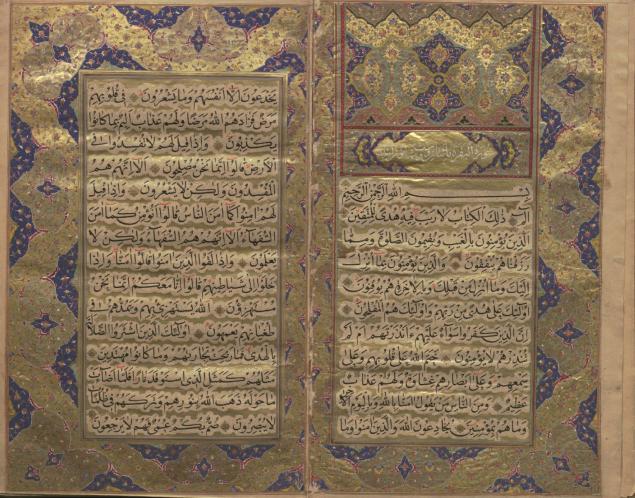 سورة البقرة
بسم الله الرحمن الرحيم
الم ذلك الكتاب لا ريب فيه هدى للمتقين
الذين يؤمنون بالغيب ويقيمون الصلوة ومما
رزقناهم ينفقون والذين يؤمنون بما انزل
اليك وما انزل من قبلك وبالاخرة هم يوقنون
اولئك على هدى من ربهم واولئك هم المفلحون
ان الذين كفروا سواء عليهم ءانذرتهم ام لم
تنذرهم لا يؤمنون ختم الله على قلوبهم وعلى
سمعهم وعلى ابصارهم غشاوة ولهم عذاب
عظيم ومن الناس من يقول امنا بالله وباليوم الاخر
وما هم بمؤمنين يخادعون الله والذين امنوا وما
يخدعون الا انفسهم وما يشعرون في قلوبهم
مرض فزادهم الله مرضا ولهم عذاب اليم بما كانوا
يكذبون واذا قيل لهم لا تفسدوا في
الارض قالوا انما نحن مصلحون الا انهم هم
المفسدون ولكن لا يشعرون واذا قيل
لهم امنوا كما امن الناس قالوا انؤمن كما امن
السفهاء الا انهم هم السفهاء ولكن لا
يعلمون واذا لقوا الذين امنوا قالوا امنا واذا
خلوا الى شياطينهم قالوا انا معكم انما نحن
مستهزؤن الله يستهزئ بهم ويمدهم في
طغيانهم يعمهون اولئك الذين اشتروا الضلالة
بالهدى فما ربحت تجارتهم وما كانوا مهتدين
مثلهم كمثل الذي استوقد نارا فلما اضاءت
ما حوله ذهب الله بنورهم وتركهم في ظلمات
لا يبصرون صم بكم عمي فهم لا يرجعون